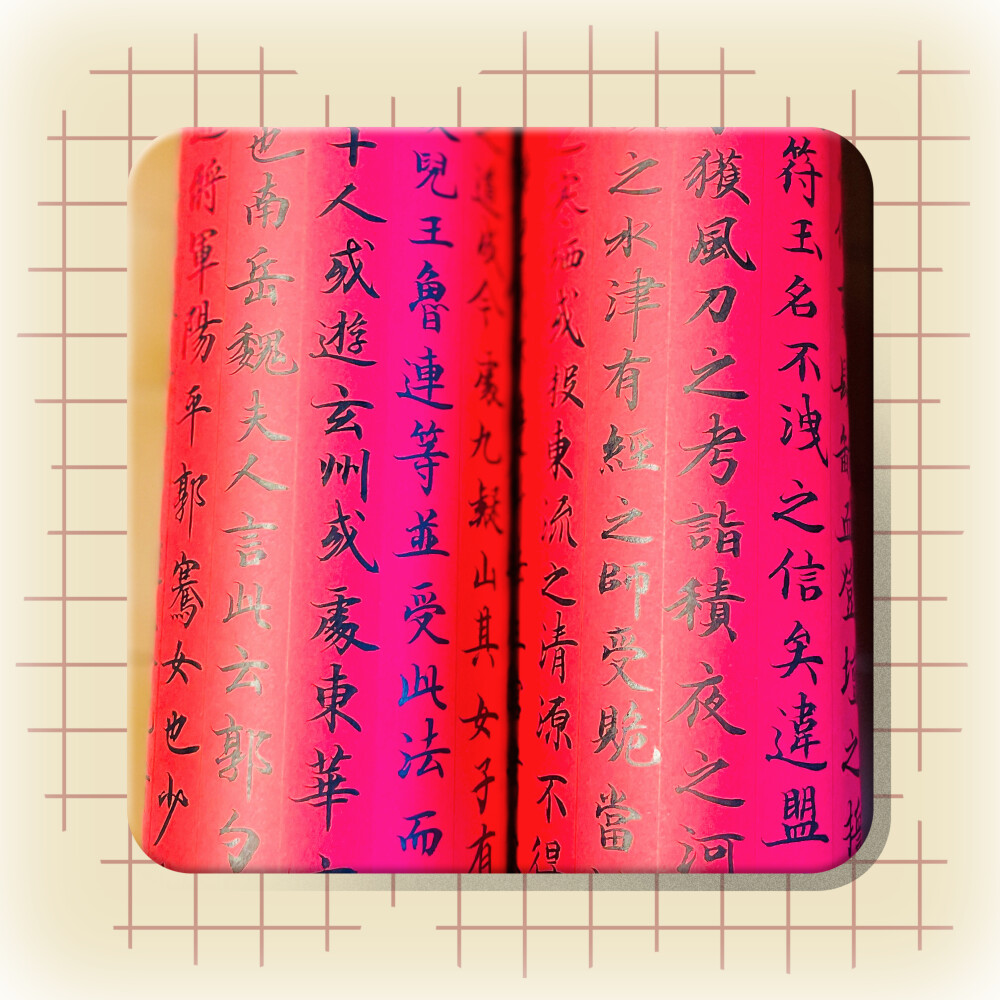 符玉名不洩之信矣違盟
獲風刀之考詣積夜之河
之水津有經之師受貺當
寒栖或投東流之清源不得
道成今處九疑山其女子有
兒王魯連等並受此法而
十人或遊玄州或處東華
也南岳魏夫人言此云郭勺
將軍陽平郭騫女也少